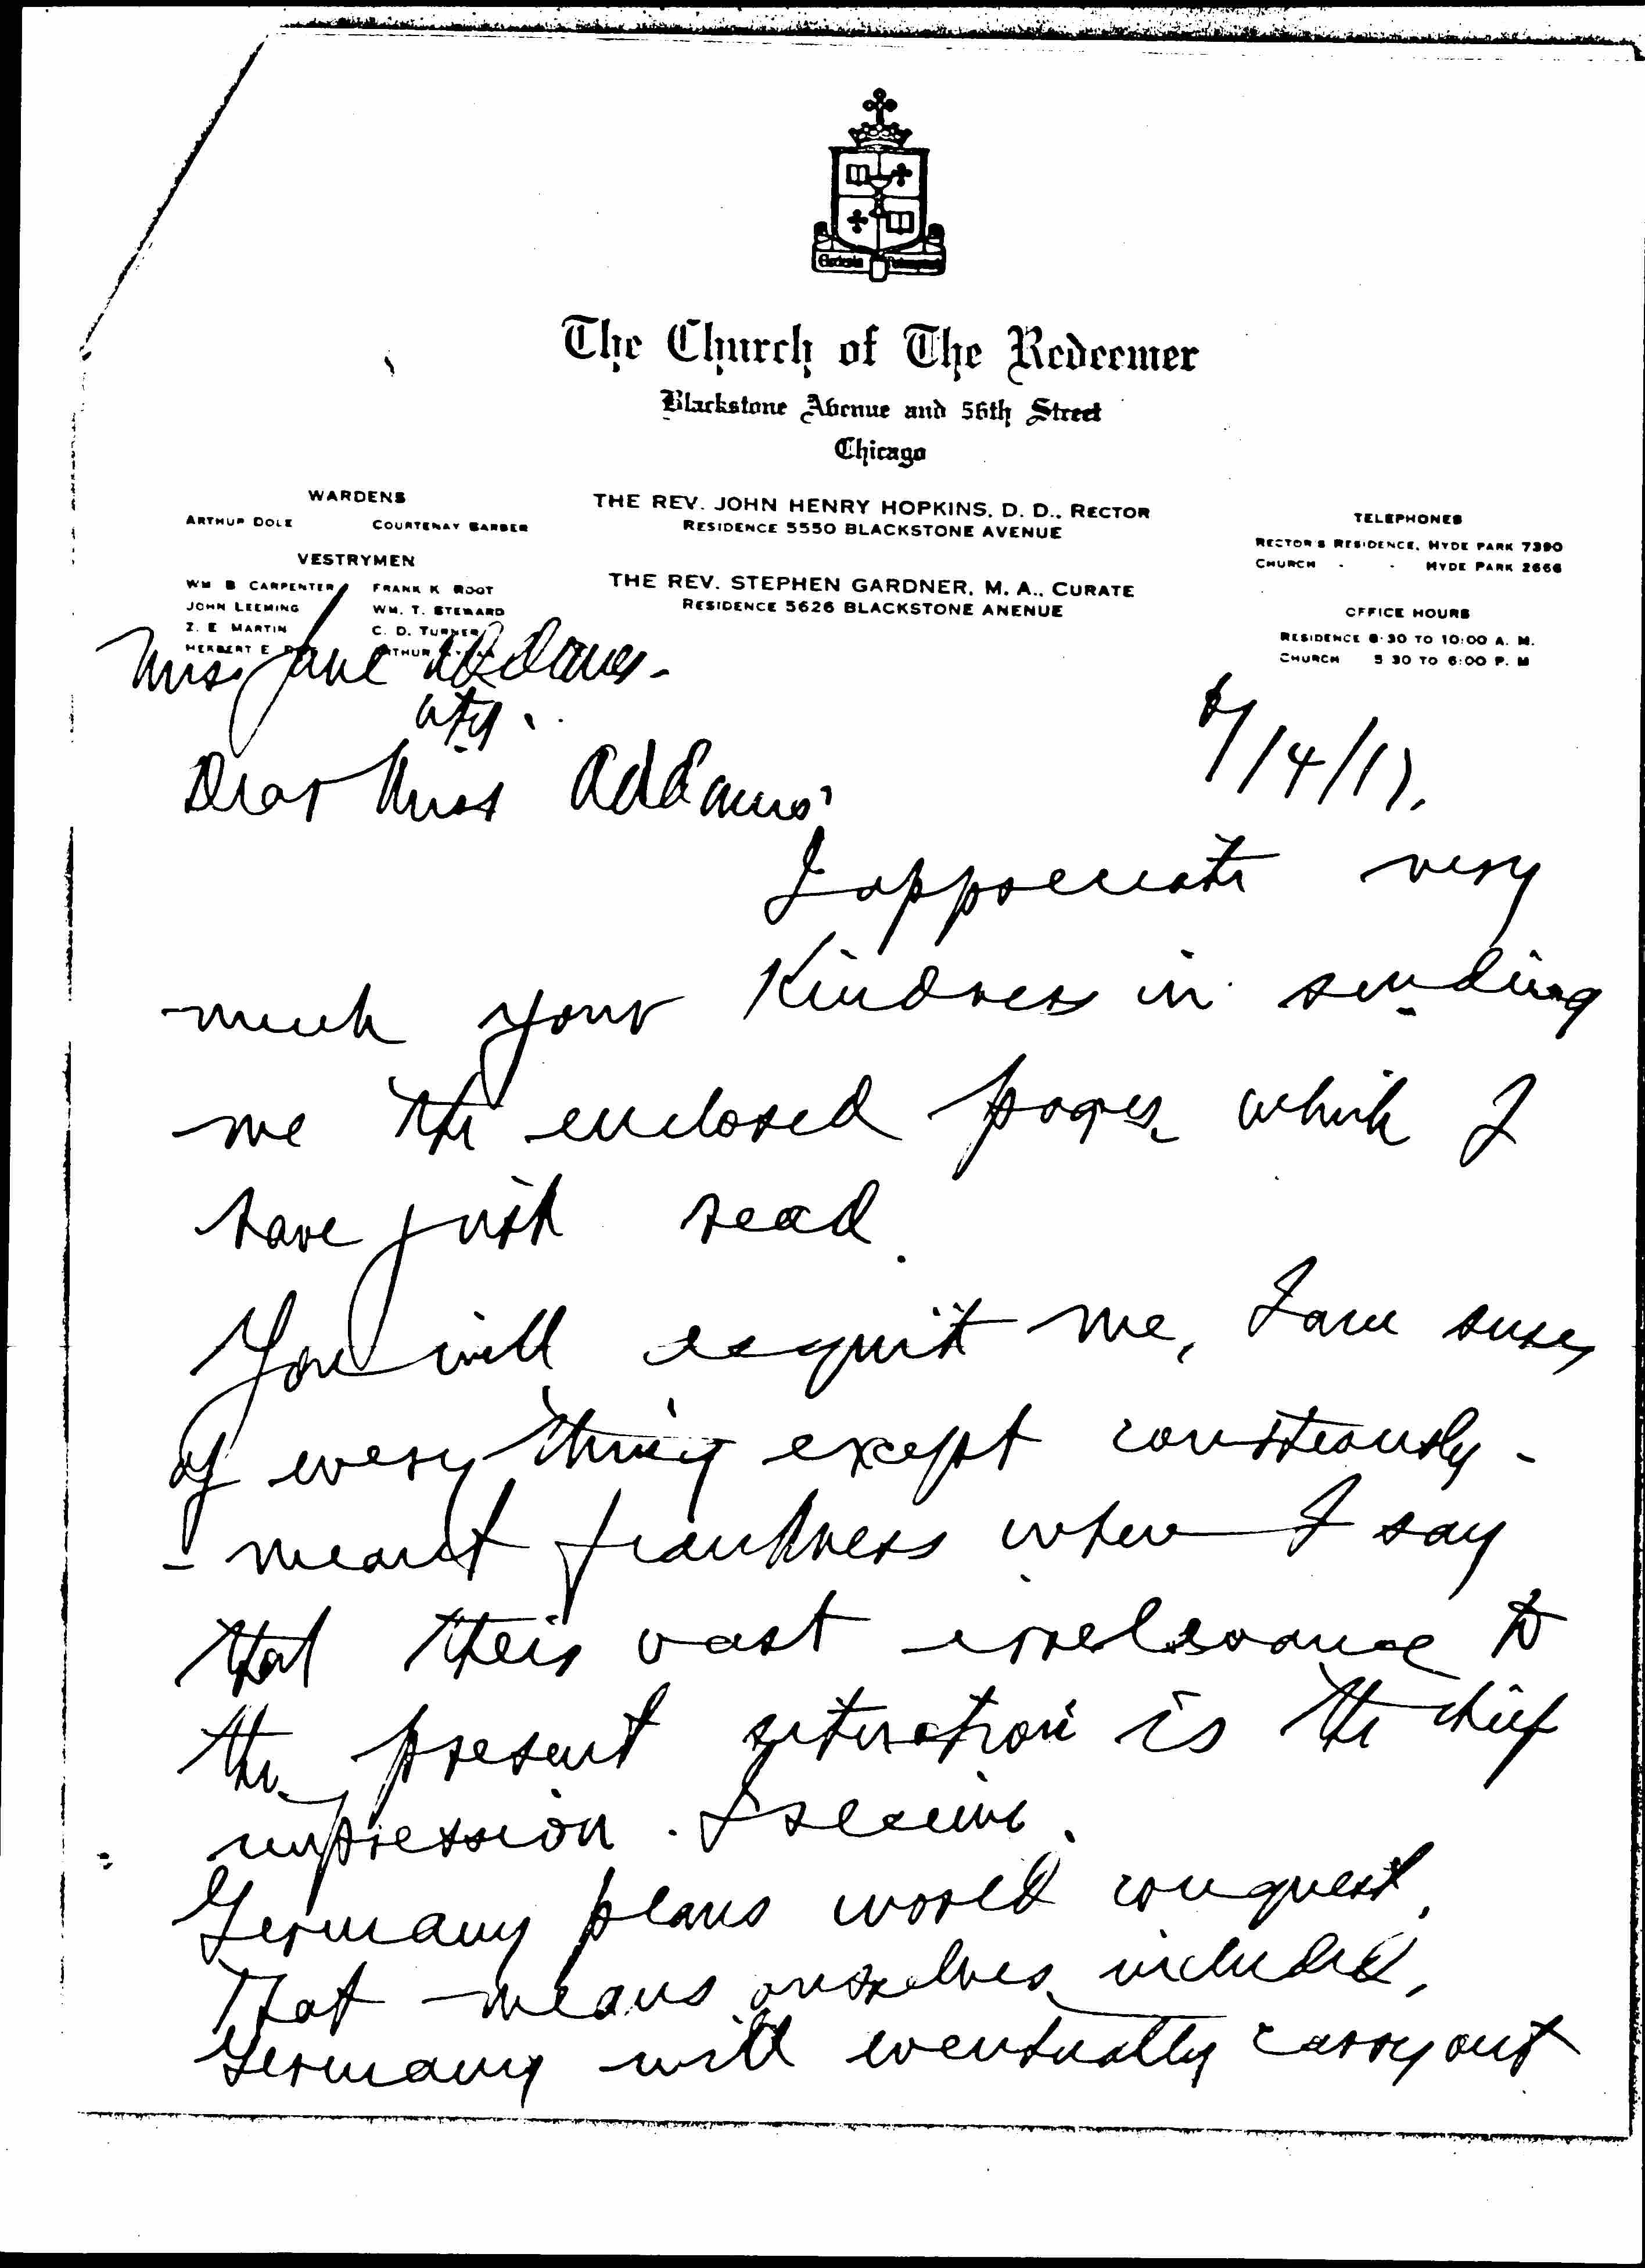 The Church of The Redeemer
Blackstone Avenue and 56th Street
Chicago
WARDENS
ARTHUR DOLE COURTENAY BARBER
VESTRYMEN
WM B CARPENTER FRANK K ROOT
JOHN LEEMING WM. T. STEWARD
Z. E MARTIN C. D. TURNER
HERBERT E
THE REV. JOHN HENRY HOPKINS, D. D., RECTOR
RESIDENCE 5550 BLACKSTONE AVENUE
THE REV. STEPHEN GARDNER, M. A., CURATE
RESIDENCE 5626 BLACKSTONE ANENUE
TELEPHONES
RECTOR'S RESIDENCE, HYDE PARK 7390
CHURCH - - HYDE PARK 2666
OFFICE HOURS
RESIDENCE 8:30 TO 10:00 A. M.
CHURCH 5 30 TO 6:00 P. M
Miss Jane Addams.
City.
/14/17.
Dear Miss Addams:
I appreciate very
much your kindness in sending
me the enclosed pages which I
have just read.
You will acquit me, I am sure,
of everything except courteously-
- meant frankness when I say
that their vast irrelevance to
the present situation is the chief
impression I receive.
Germany plans world conquest.
That means ourselves included.
Germany will eventually carry out